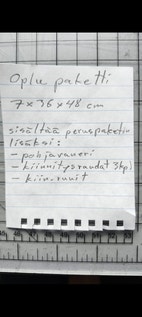 Oplu paketti
7 x 36 x 48 cm
sisältää peruspaketin
lisäksi:
- pohjavaneri
- kiinnitysraudat 3kpl
- kiin.ruuvit